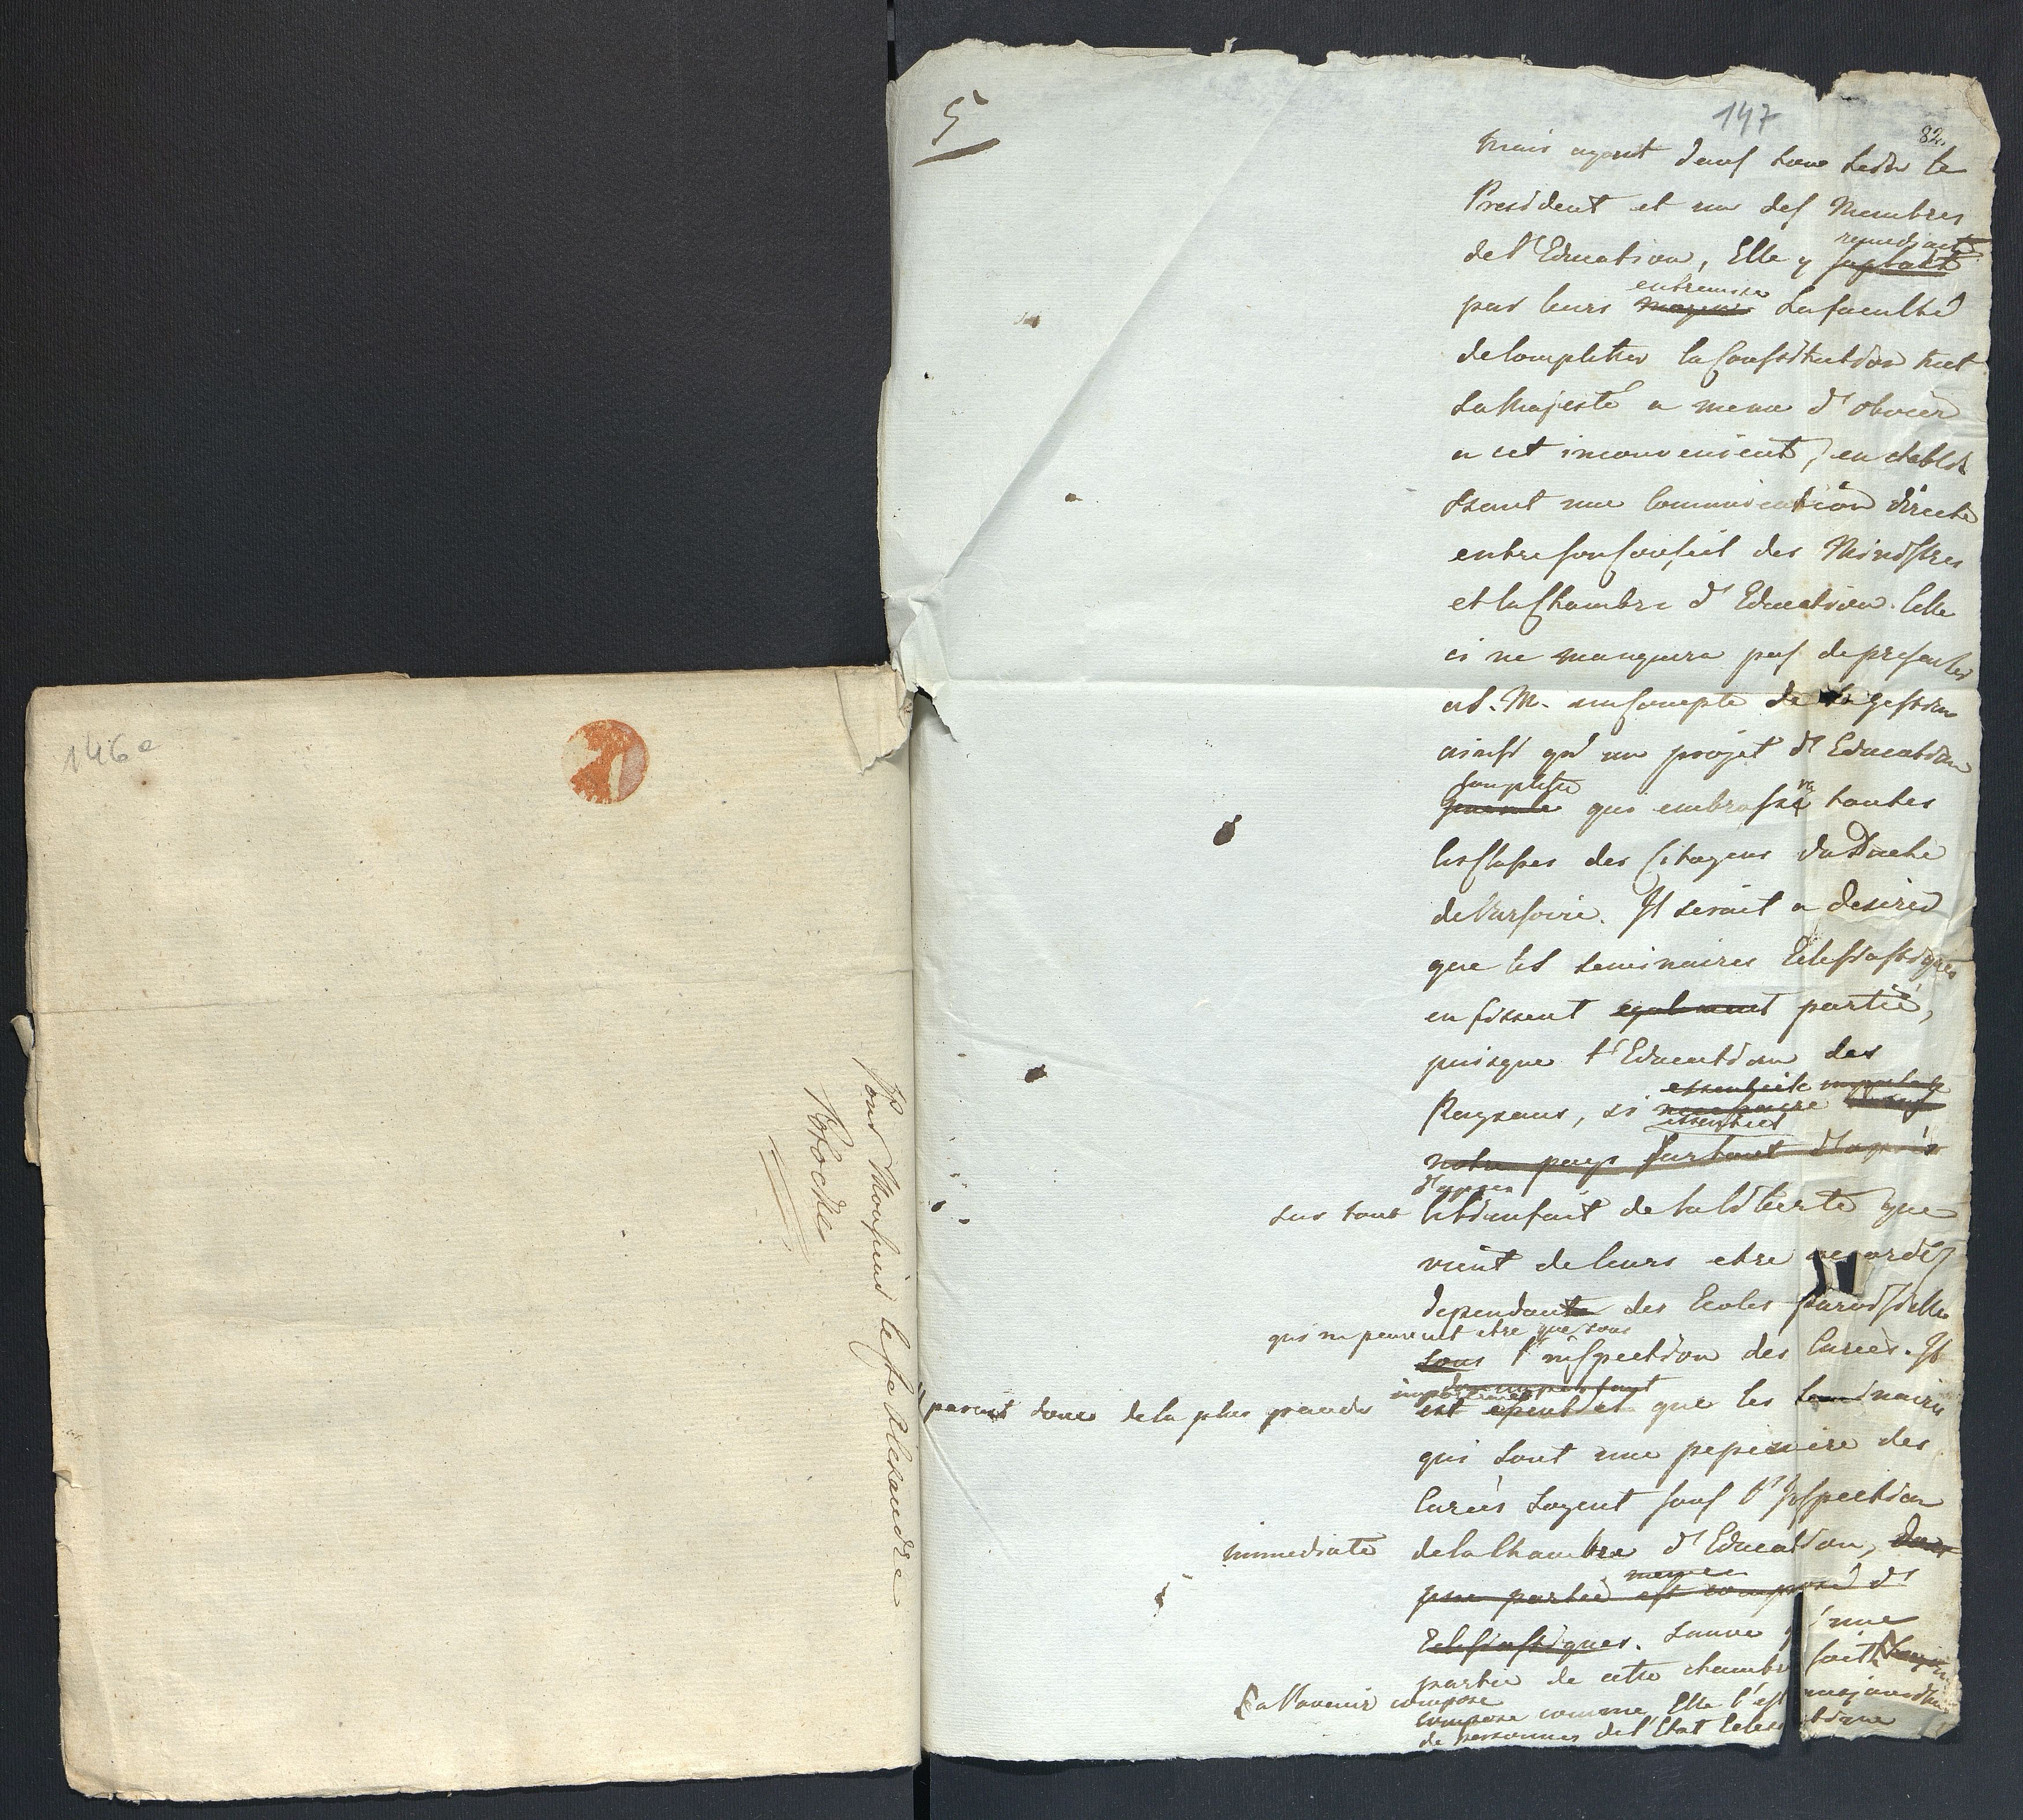 146a
Pour Monsieur le Cte Alexandre
Potocki
5
147
82.
mais ayant dans son sein le
President et un des Membres
de l'Education, Elle y remediait
par leurs entremise La faculté
de completter la Constitution met
Sa Majesté a meme d'obvier
a cet inconvenient, en etablis
ssant une Communication directe
entre son Conseil des Ministres
et la Chambre d'Education. Celle
ci ne manquera pas de presenter
a S. M. un Compte de sa gestion
ainsi qu'un projet d'Education
complette
qui embrasse toutes
les Classes des Citoyens du Duché
de Varsovie. Il serait a desirer
que les seminaires Eclesiastiques
en fissent egalement partie,
puisque l'Education des
essentiele
Paysans, si necessaire
essentiel
notre pays surtout d'après
d'apres
sur tout le bienfait de la liberté que
vient de leurs etre accordé,
dependante des Ecoles Paroissialles
qui ne peuvent etre que sous
sous l'inspection des Curés. Il
important
parait donc de la plus grande importance
est essentiel que les Seminaires
qui sont une pepiniere des
Curés soyent sous l'Inspection
immediate de la Chambre d'Education, dont
meme
une partie est composé des
Eclesiastiques. une
partie de cette chambre soit
a l'avenir compose
compose comme Elle l'est aujourd'hui
de personnes de l'Etat Eclesiastique